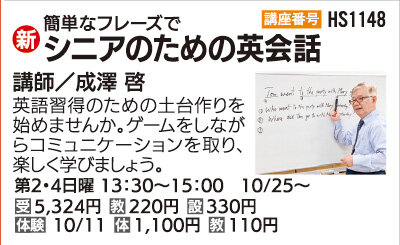 簡単なフレーズで
講座番号 HS1148
新 シニアのための英会話
講師／成澤 啓
英語習得のための土台作りを
始めませんか。ゲームをしなが
らコミュニケーションを取り、
楽しく学びましょう。
第2・4日曜 13:30～15:00 10/25～
受 5,324円 教 220円 設 330円
体験 10/11 体 1,100円 教 110円